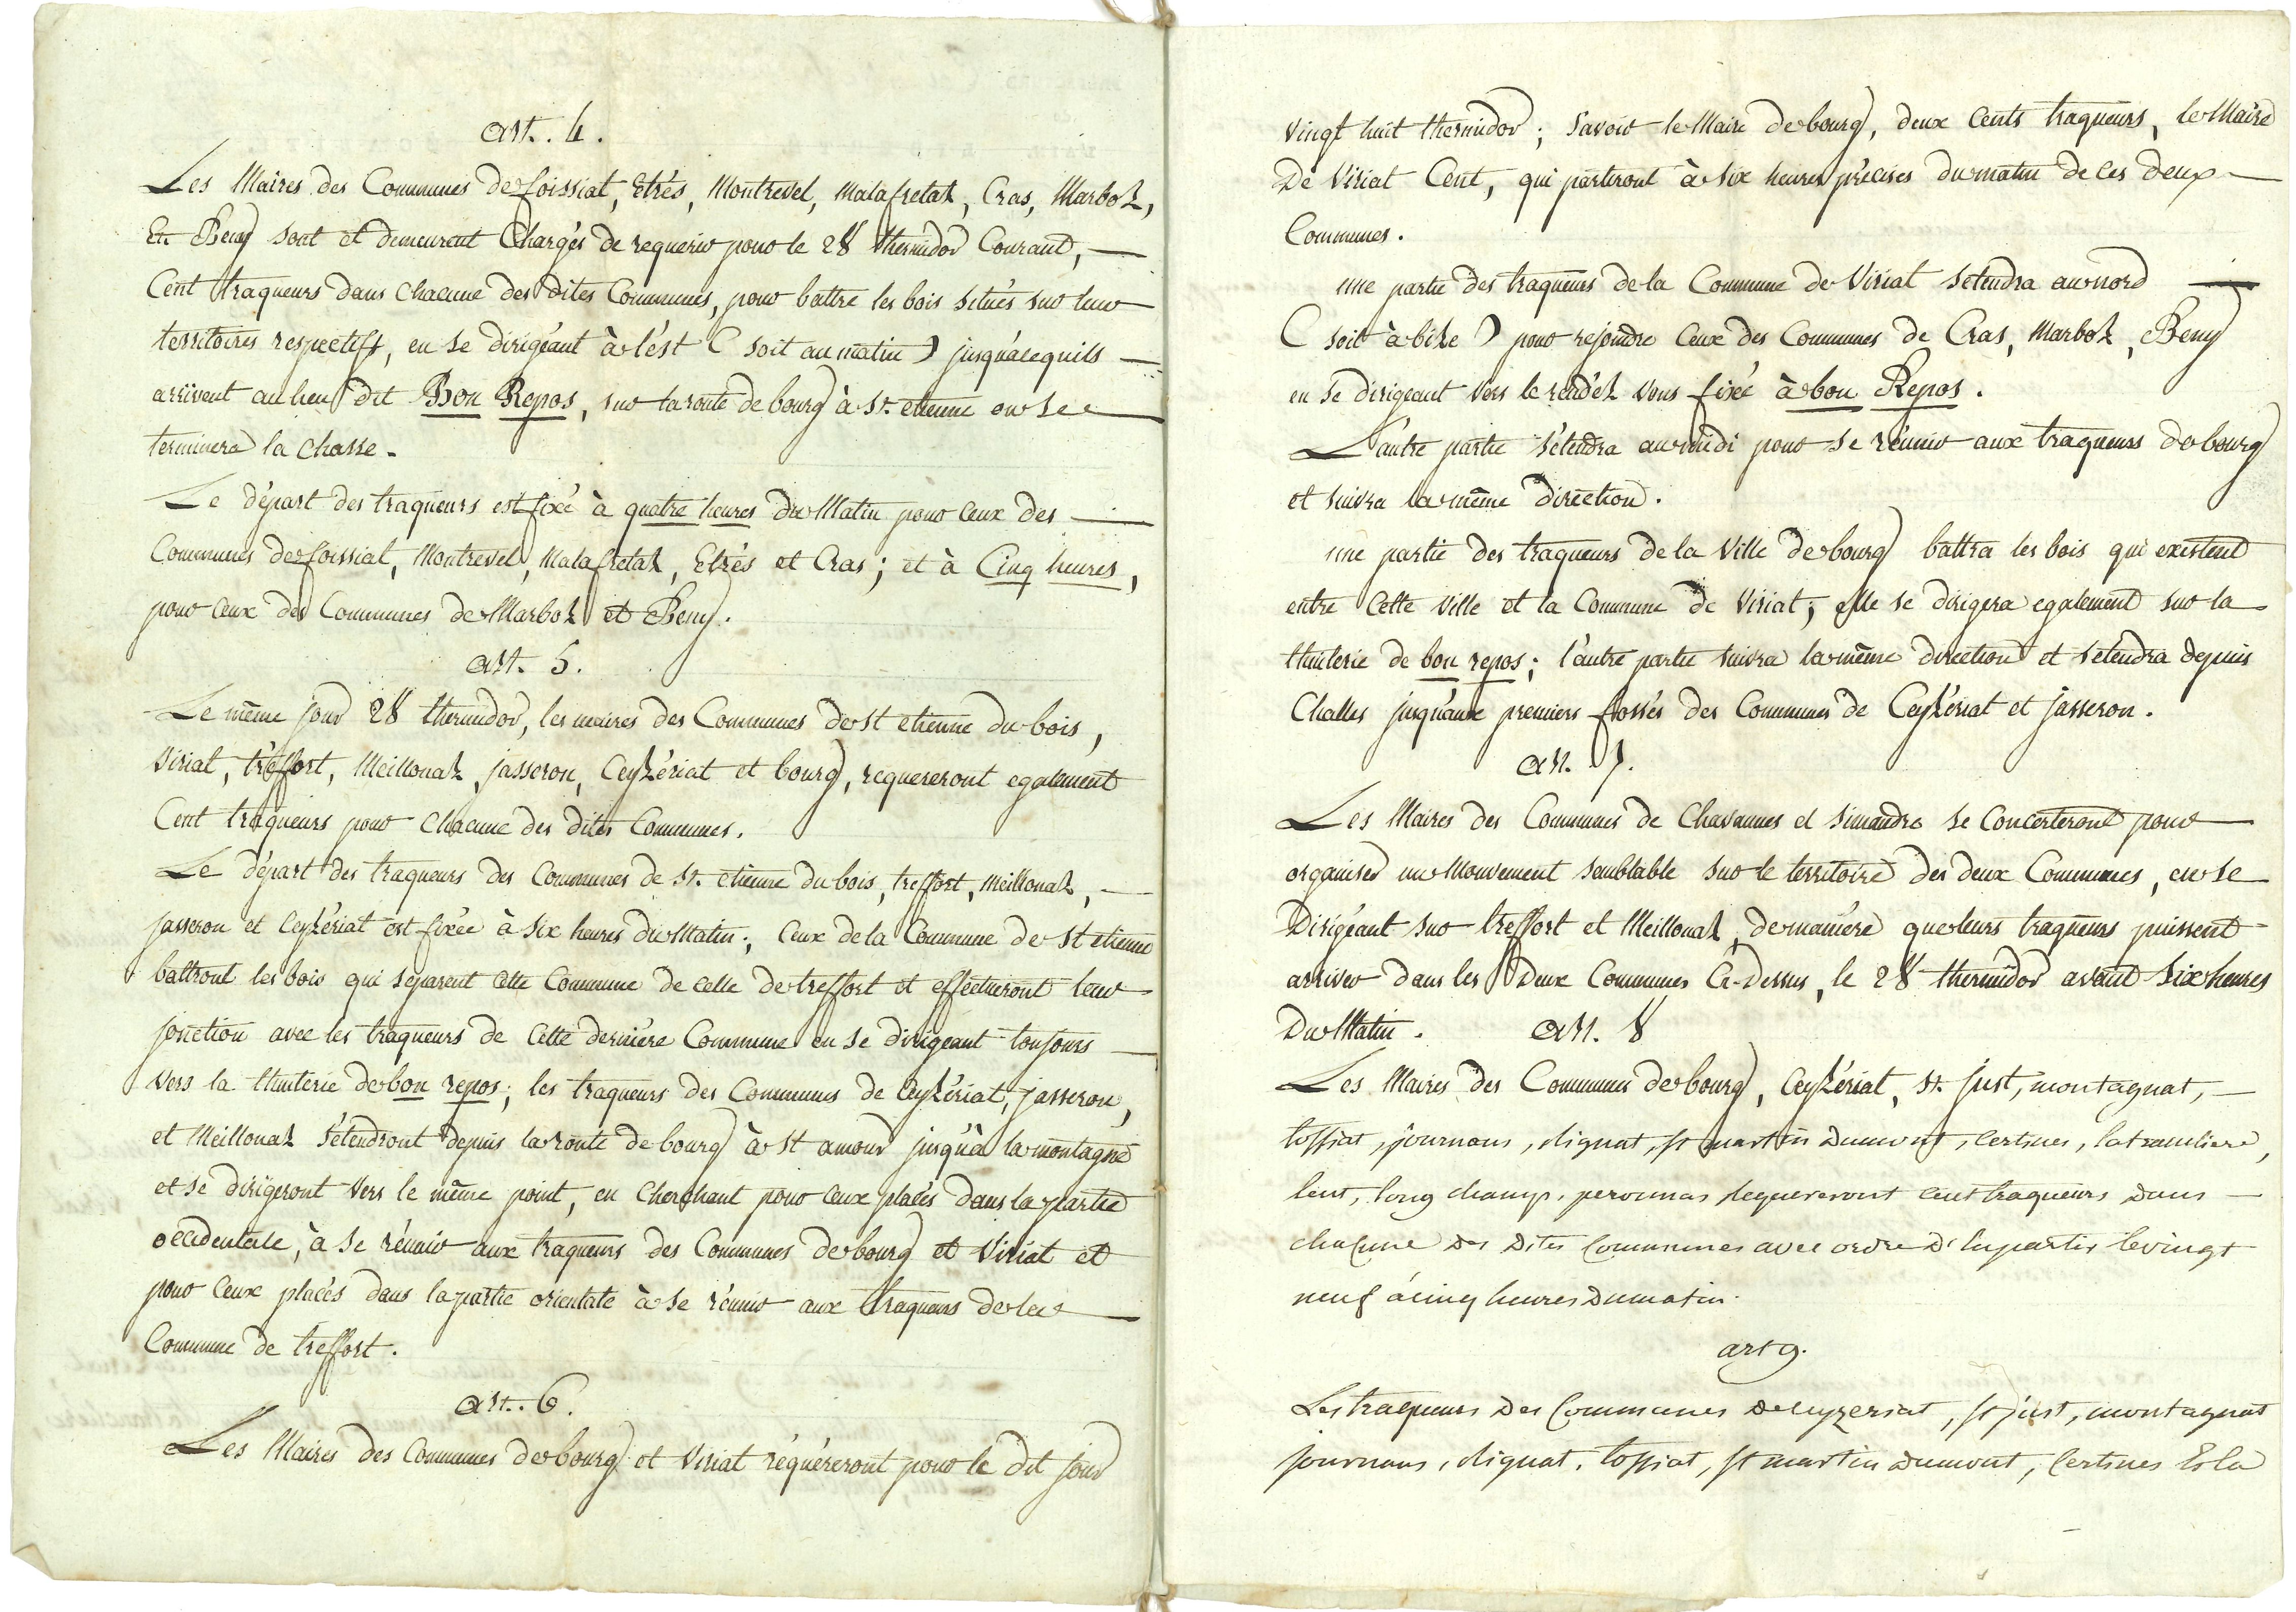 art. 4.
Les Maires des Communes de foissiat, Etrés, Montrevel, Malafretaz, Cras, Marboz,
Et Beny sont et demeurent Chargés de requerir pour le 28 thermidor Courant,
Cent traqueurs dans chacune des dites Communes, pour battre les bois situés sur leur
territoires respectifs, en se dirigeant à l'ést (soit au matin) jusqu'àcequ'ils
arrivent au lieu dit Bon Repos, sur la route de bourg à St. etienne ou se
terminera la chasse.
Le départ des traqueurs est fixé à quatre heures du Matin pour ceux des
Communes de foissiat, Montrevel, Malafretaz, Etrés et Cras; et à Cinq heures,
pour ceux des Communes de Marboz et Beny.
art. 5.
Le même jour 28 thermidor, les maires des Communes de St etienne du bois,
Viriat, tréffort, Meillonaz, jasseron, Ceyzériat et bourg, requereront egalement
Cent traqueurs pour chacune des dites Communes.
Le départ des traqueurs des Communes de St. etienne du bois, treffort, Meillonaz,
jasseron et Ceyzériat est fixée à six heures du Matin; Ceux de la Commune de St etienne
battront les bois qui séparent cette Commune de celle de treffort et effectueront leur
jonction avec les traqueurs de Cette dernière Commune en se dirigeant toujours
vers la thuilerie de bon repos; les traqueurs des Communes de Ceyzériat, jasseron,
et Meillonaz s'étendront depuis la route de bourg à St amour jusqu'à la montagne
et se dirigeront vers le même point, en cherchant pour ceux placés dans la partie
occidentale, à se réunir aux traqueurs des Communes de bourg et Viriat et
pour Ceux placés dans la partie orientale à se réunir aux traqueurs de la
Commune de treffort.
art. 6.
Les Maires des Communes de bourg et Viriat réquéreront pour le dit jour
vingt huit thermidor; Savoir le Maire de bourg, deux Cents traqueurs, le Maire
De Viriat Cent, qui partiront à six heures précises du matin de ces deux
Communes.
une partie des traqueurs de la Commune de Viriat s'etendra au nord
(soit à bize) pour rejoindre Ceux des Communes de Cras, Marboz, Beny
en se dirigeant vers le rendéz vous fixé à bon Repos.
L'autre partie s'étendra au midi pour se réunir aux traqueurs de bourg
et suivra la même direction.
une partie des traqueurs de la Ville de bourg battra les bois qui existent
entre Cette Ville et la Commune de Viriat; elle se dirigera egalement sur la
thuilerie de bon repos; l'autre partie suivra la même direction et s'etendra depuis
Challes jusqu'aux premiers fossés des Communes de Ceyzériat et jasseron.
art. 7.
Les Maires des Communes de Chavannes et Simandre se Concerteront pour
organiser un Mouvement semblable sur le territoire des deux Communes, en se
Dirigéant sur treffort et Meillonaz, de manière que leurs traqueurs puissent
arriver dans les Deux Communes Ci-Dessus, le 28 thermidor avant Six heures
Du Matin. art. 8
Les Maires des Communes de bourg, Ceyzériat, St. just, montagnat,
tossiat, journans, rignat, st martin dumont, certines, la tranliere,
lent, long champ, peronnas requereront cent traqueurs dans
chacune des dites Communes avec ordre d'en partir le vingt
neuf à cinq heures dumatin.
art 9.
Les traqueurs des Communes de ceyzeriat, st just, montagnat
journans, rignat, tossiat, st martin dumont, Certines Et la